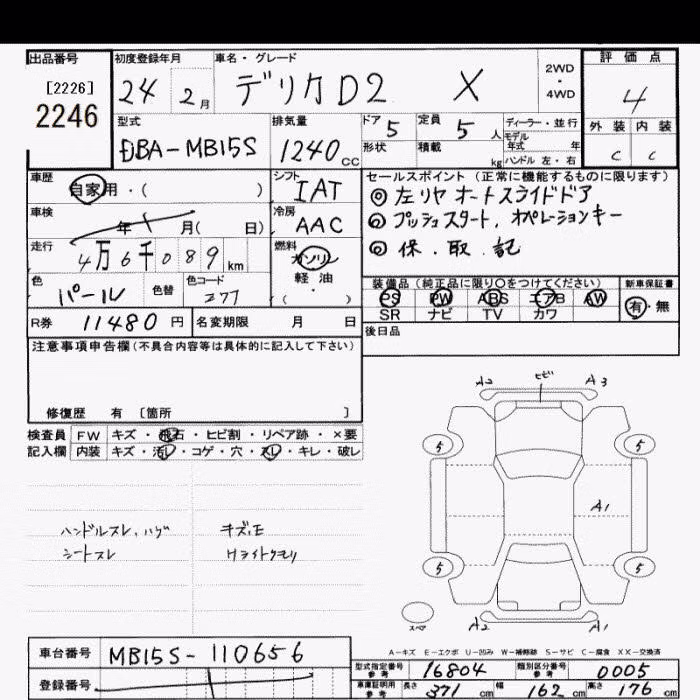 出品番号 初度登録年月 車名・グレード 2WD・4WD 評価点
[2226] 24 2月 デリカD2 X 4
2246
型式 排気量 ドア 定員 ディーラー・並行 外装 内装
DBA-MB15S 1240cc 5 5人 モデル年式 年 C C
形状 積載 kg ハンドル 左・右
車歴 自家用・( ) シフト IAT セールスポイント(正常に機能するものに限ります)
◎左リヤオートスライドドア
車検 年 月( 日) 冷房 AAC
◎プッシュスタート、オペレーションキー
走行 4万6千089km 燃料 ガソリン・軽油・( )
◎保.取.記
色 パール 色替 色コード Z7T
装備品(純正品に限り○をつけてください) 新車保証書
PS PW ABS エアB AW 有・無
R券 11480円 名変期限 月 日 SR ナビ TV カワ
後日品
注意事項申告欄(不具合内容等は具体的に記入して下さい)
修復歴 有 〔箇所 〕
検査員 FW キズ・飛石・ヒビ割・リペア跡・×要
記入欄 内装 キズ・汚レ・コゲ・穴・スレ・キレ・破レ
ハンドルスレ、ハゲ
シートスレ
A2 ヒビ A3
5 5
A1
5 5
スペア A2 A1
A-キズ E-エクボ U-凹み W-補修跡 S-サビ C-腐食 XX-交換済
車台番号 MB15S-110656
登録番号
型式指定番号 参考 16804 類別区分番号 参考 0005
車庫証明用 参考 長さ 371cm 幅 162cm 高さ 176cm